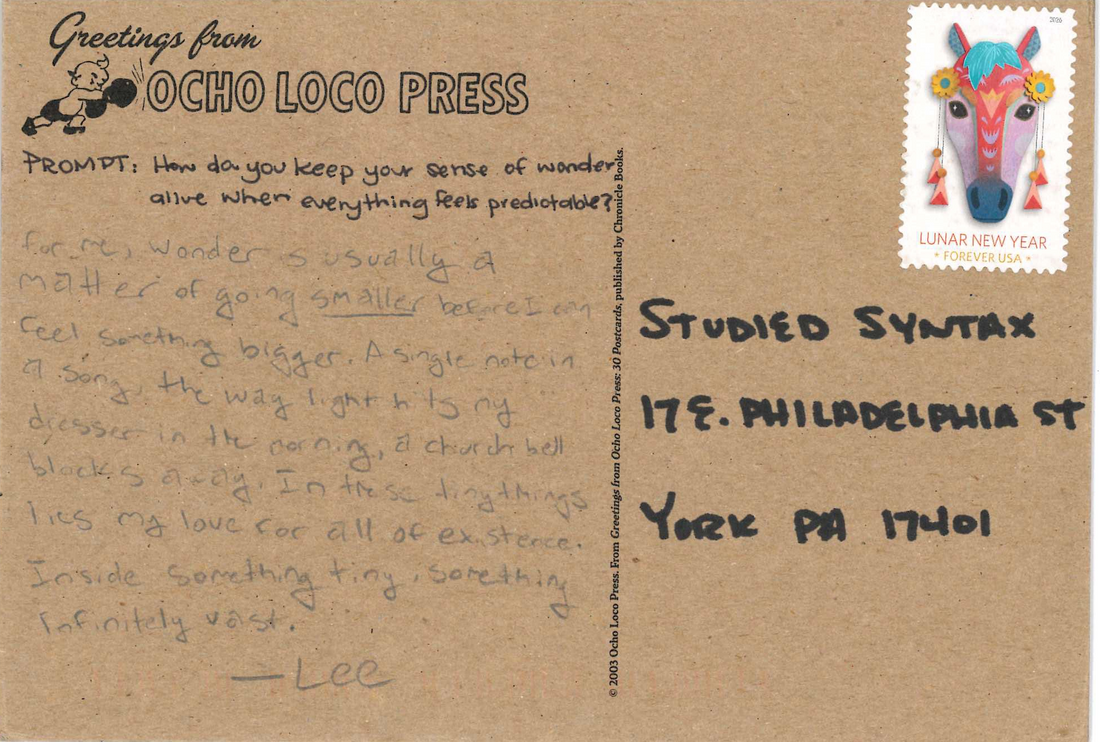 Greetings from
OCHO LOCO PRESS
PROMPT: How do you keep your sense of wonder
alive when everything feels predictable?
For me, wonder is usually a
matter of going smaller before I can
feel something bigger. A single note in
a song, the way light hits my
dresser in the morning, a church bell
blocks away. In these tiny things
lies my love for all of existence.
Inside something tiny, something
infinitely vast.
—Lee
© 2003 Ocho Loco Press. From Greetings from Ocho Loco Press: 30 Postcards, published by Chronicle Books.
2026
LUNAR NEW YEAR
* FOREVER USA *
STUDIED SYNTAX
17 E. PHILADELPHIA ST
YORK PA 17401